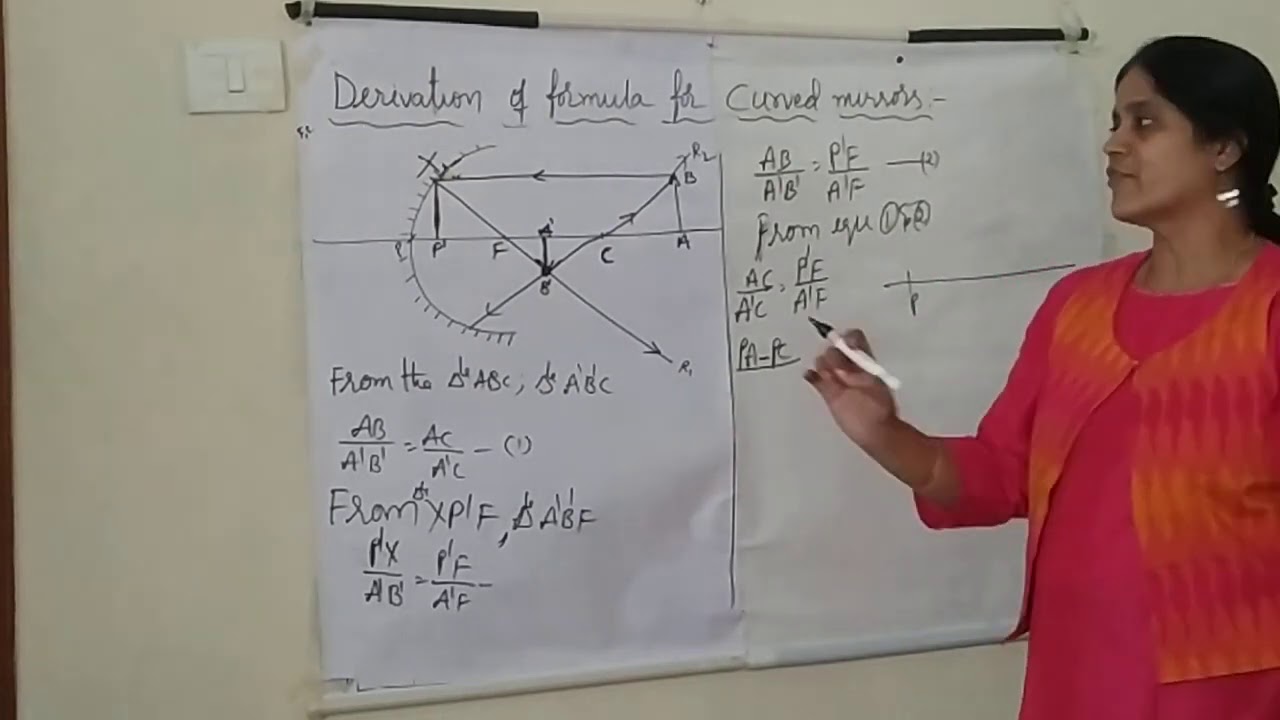 Derivation of formula for Curved mirrors:-
X
R2
B
P
P'
F
A'
C
A
B'
R1
From the Δle ABC, Δle A'B'C
AB/A'B' = AC/A'C - (1)
From Δle XP'F, Δle A'B'F
P'X/A'B' = P'F/A'F -
AB/A'B' = P'F/A'F —(2)
From equ ① & ②
AC/A'C = P'F/A'F
PA-PC
P